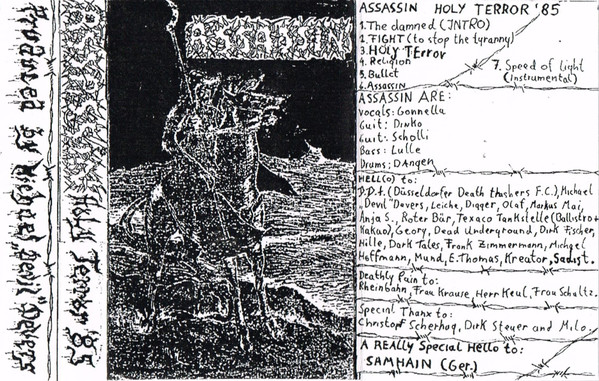 Produced by Michael "Devil" Devers
ASSASSIN
Holy Terror '85
ASSASSIN
ASSASSIN HOLY TERROR '85
1. The damned (INTRO)
2. FIGHT (to stop the tyranny)
3. HOLY TError
4. Religion
5. Bullet
6. Assassin
7. Speed of light
(instrumental)
ASSASSIN ARE:
Vocals: Gonnella
Guit: Dinko
Guit: Scholli
Bass: Lulle
Drums: DAngen
HELL(O) to:
D.D.F. (Düsseldorfer Death thashers F.C.), Michael
"Devil" Devers, Leiche, Digger, Olaf, Markus Mai,
Anja S., Roter Bär, Texaco Tankstelle (Ballistro+
Kakao), Geory, Dead Underground, Dirk Fischer,
Hille, Dark Tales, Frank Zimmermann, Michael
Hoffmann, Mund, E.Thomas, Kreator, Sadist.
Deathly Pain to:
Rheinbahn, Frau Krause, Herr Keul, Frau Schultz.
Special Thanx to:
Christopf Scherhag, Dirk Steuer and Milo.
A REALLY Special Hello to:
SAMHAIN (Ger.)